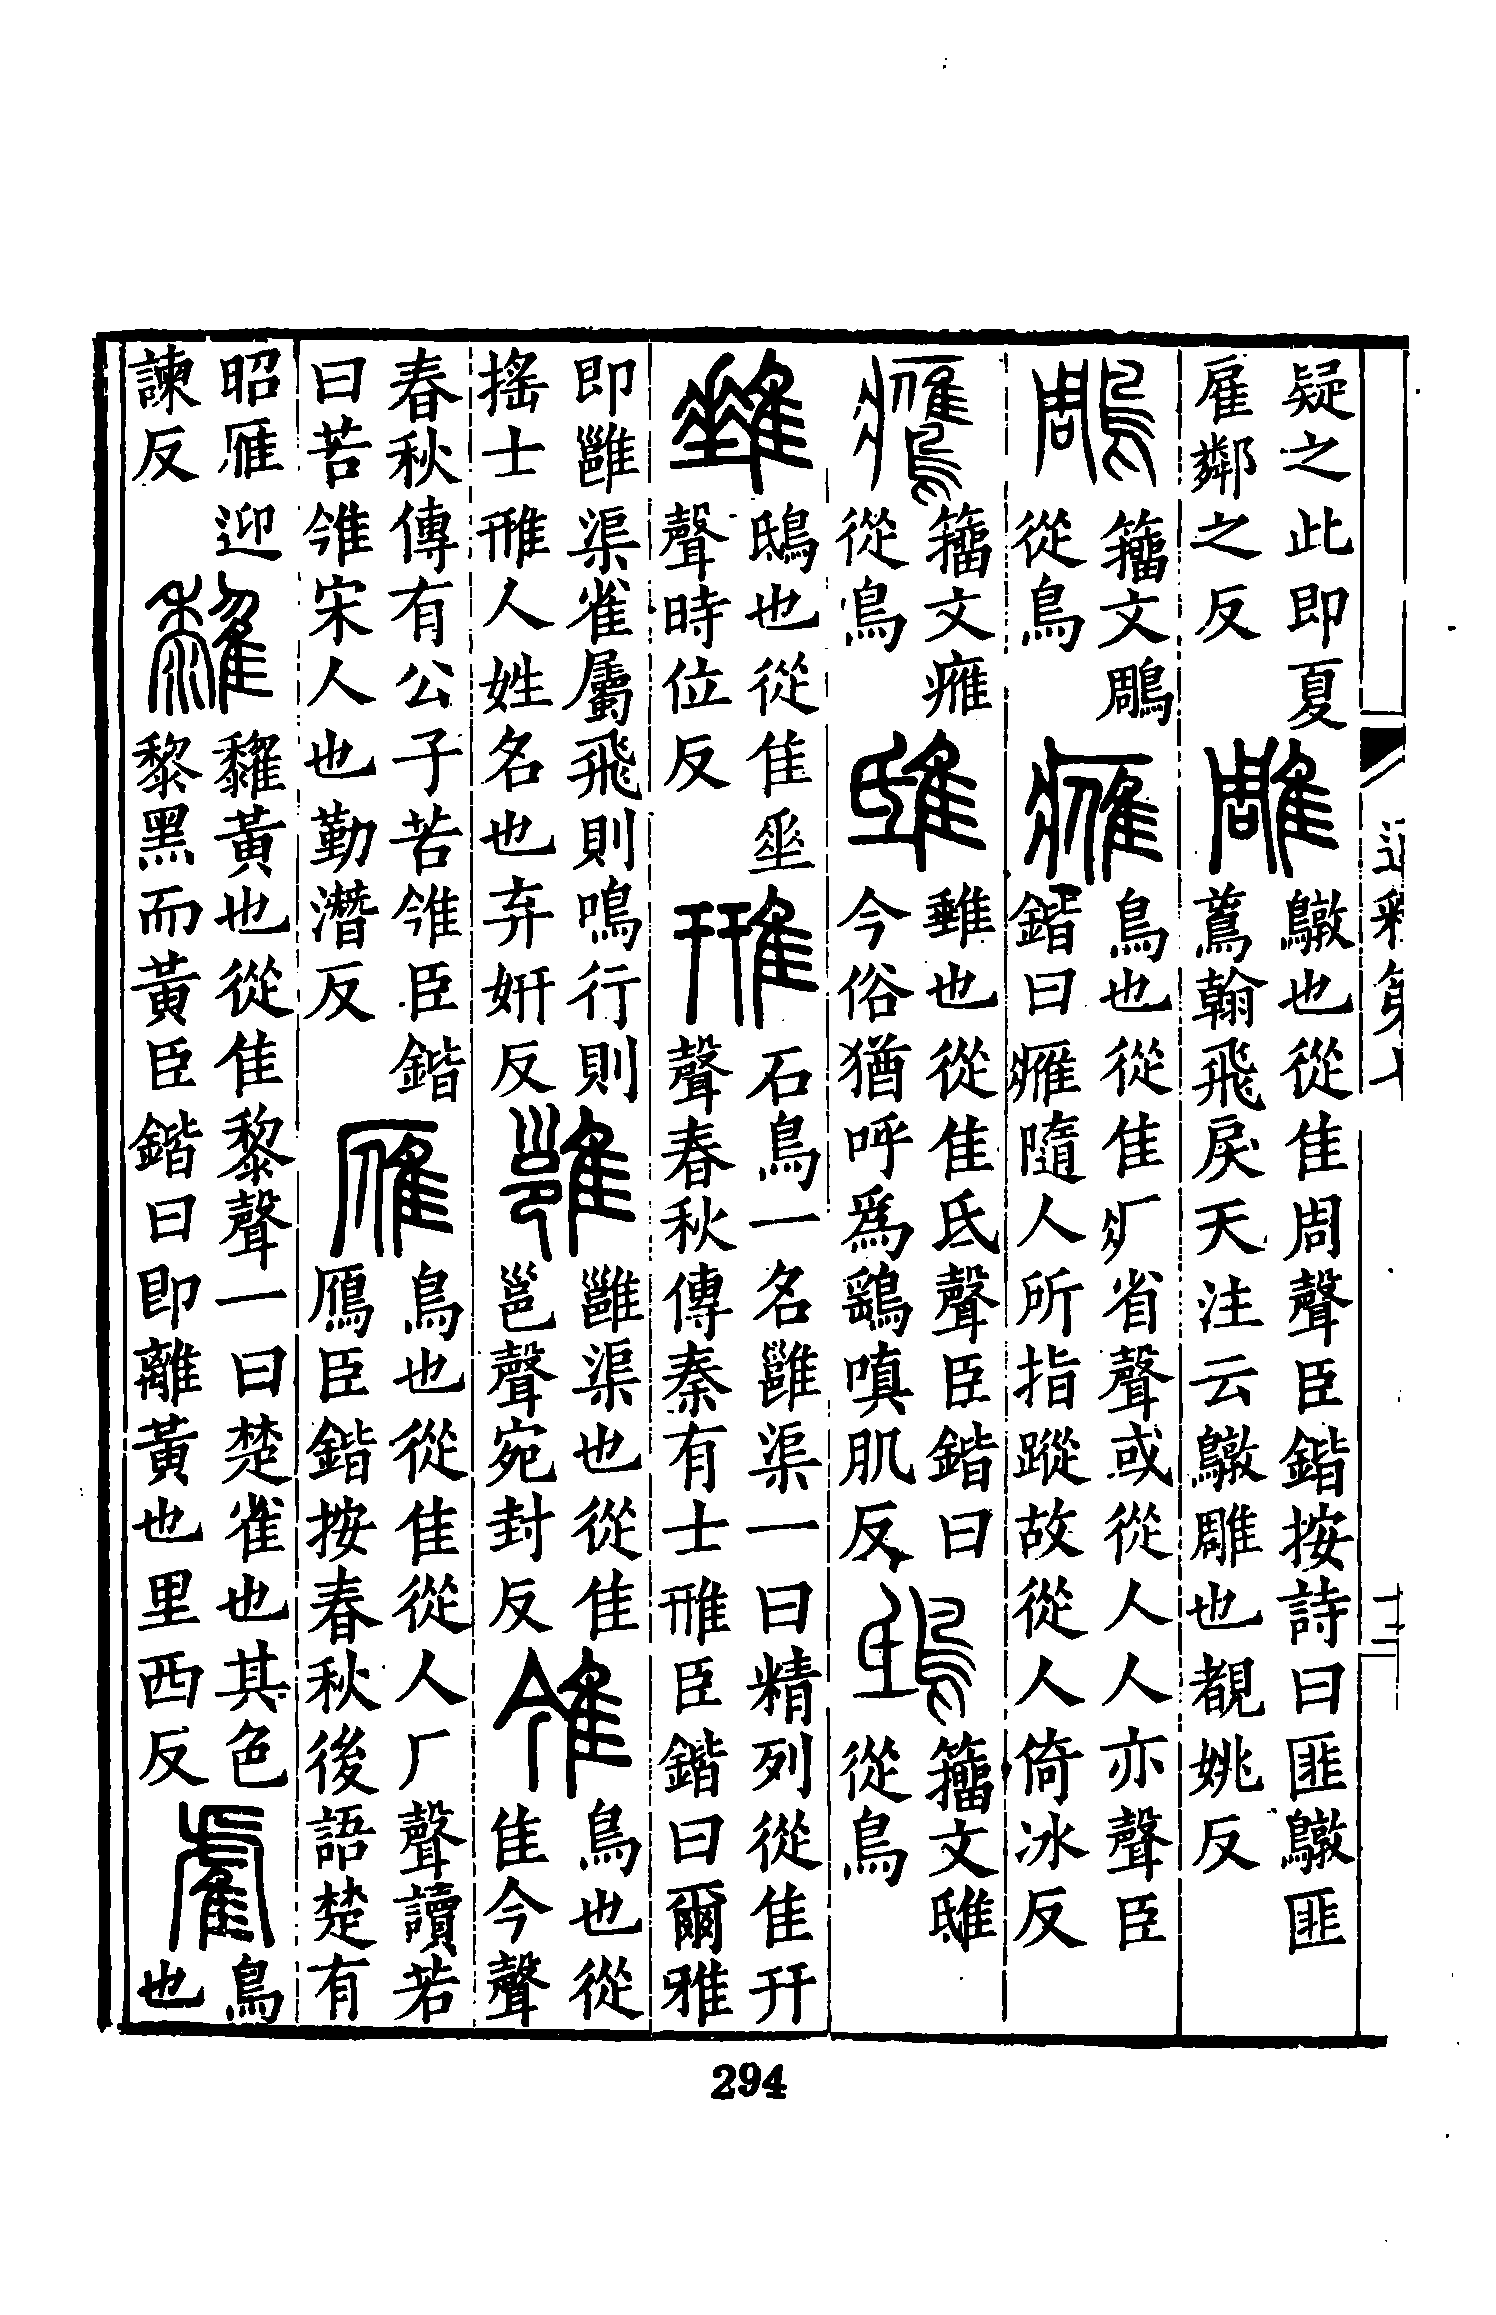 疑之此即夏
雇鄰之反
雕
鷻也從隹周聲臣鍇按詩曰匪鷻匪
鳶翰飛戾天注云鷻雕也覩姚反
鵰
籀文鵰
從鳥
䧹
鳥也從隹疒省聲或從人人亦聲臣
鍇曰䧹隨人所指蹤故從人人倚冰反
鷹
籀文䧹
從鳥
雎
雖也從隹氐聲臣鍇曰
今俗猶呼爲鷂嗔肌反
鴟
籀文雎
從鳥
雞
鴟也從隹𠂹
聲時位反
雃
石鳥一名雝渠一曰精列從隹幵
聲春秋傳秦有士雃臣鍇曰爾雅
即雝渠雀屬飛則鳴行則
搖士雃人姓名也弃姸反
雝
雝渠也從隹
邕聲宛封反
雂
鳥也從
隹今聲
春秋傳有公子苦雂臣鍇
曰苦雂宋人也勤潛反
雁
鳥也從隹從人厂聲讀若
鴈臣鍇按春秋後語楚有
昭雁迎
諫反
䨄
䨄黃也從隹黎聲一曰楚雀也其色
黎黑而黃臣鍇曰即離黃也里西反
雐
鳥
也
294